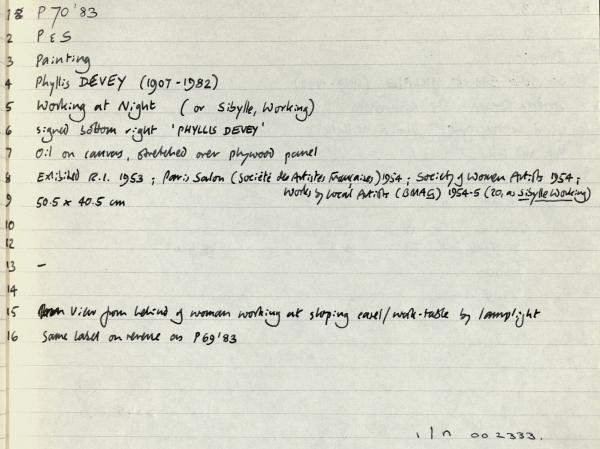 1 P 70 '83
2 P & S
3 Painting
4 Phyllis DEVEY (1907-1982)
5 Working at Night (or Sibylle, Working)
6 signed bottom right 'PHYLLIS DEVEY'
7 Oil on canvas, stretched over plywood panel
8 Exhibited R.I. 1953; Paris Salon (Société des Artistes Françaises) 1954; Society of Women Artists 1954;
Works by Local Artists (BMAG) 1954-5 (20, as Sibylle Working)
9 50.5 x 40.5 cm
10
12
12
13 -
14
15 View from behind of woman working at sloping easel/work-table by lamplight
16 Same label on reverse as P69'83
i/n 002333.